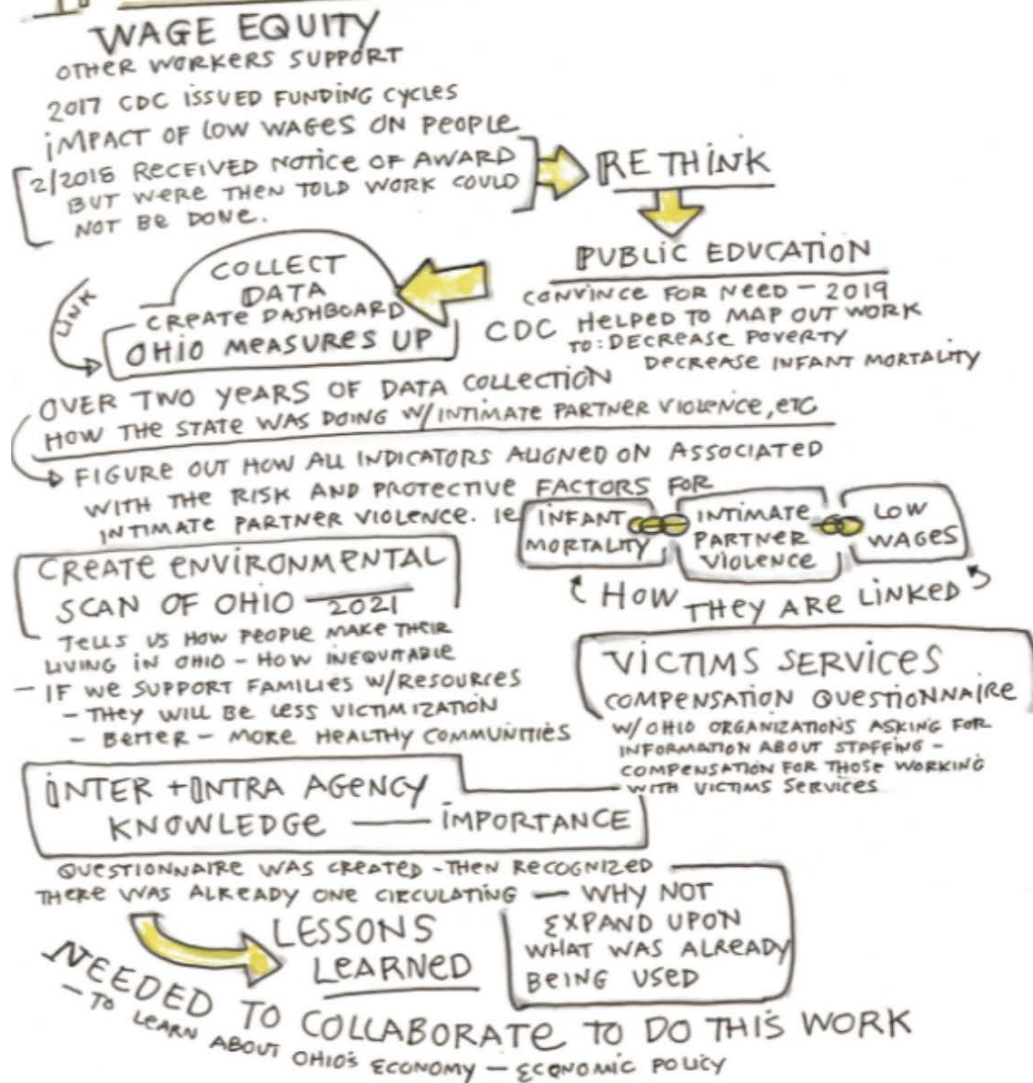 WAGE EQUITY
OTHER WORKERS SUPPORT
2017 CDC ISSUED FUNDING CYCLES
IMPACT OF LOW WAGES ON PEOPLE
2/2018 RECEIVED NOTICE OF AWARD
BUT WERE THEN TOLD WORK COULD
NOT BE DONE.
RE THINK
PUBLIC EDUCATION
CONVINCE FOR NEED - 2019
CDC HELPED TO MAP OUT WORK
TO: DECREASE POVERTY
DECREASE INFANT MORTALITY
COLLECT
DATA
CREATE DASHBOARD
OHIO MEASURES UP
LINK
OVER TWO YEARS OF DATA COLLECTION
HOW THE STATE WAS DOING W/INTIMATE PARTNER VIOLENCE, ETC
FIGURE OUT HOW ALL INDICATORS ALIGNED ON ASSOCIATED
WITH THE RISK AND PROTECTIVE FACTORS FOR
INTIMATE PARTNER VIOLENCE. IE
INFANT
MORTALITY
INTIMATE
PARTNER
VIOLENCE
LOW
WAGES
HOW THEY ARE LINKED
CREATE ENVIRONMENTAL
SCAN OF OHIO - 2021
TELLS US HOW PEOPLE MAKE THEIR
LIVING IN OHIO - HOW INEQUITABLE
- IF WE SUPPORT FAMILIES W/RESOURCES
- THEY WILL BE LESS VICTIMIZATION
- BETTER - MORE HEALTHY COMMUNITIES
VICTIMS SERVICES
COMPENSATION QUESTIONNAIRE
W/OHIO ORGANIZATIONS ASKING FOR
INFORMATION ABOUT STAFFING -
COMPENSATION FOR THOSE WORKING
WITH VICTIMS SERVICES
INTER + INTRA AGENCY
KNOWLEDGE — IMPORTANCE
QUESTIONNAIRE WAS CREATED - THEN RECOGNIZED
THERE WAS ALREADY ONE CIRCULATING — WHY NOT
EXPAND UPON
WHAT WAS ALREADY
BEING USED
LESSONS
LEARNED
NEEDED TO COLLABORATE TO DO THIS WORK
- TO LEARN ABOUT OHIO'S ECONOMY - ECONOMIC POLICY